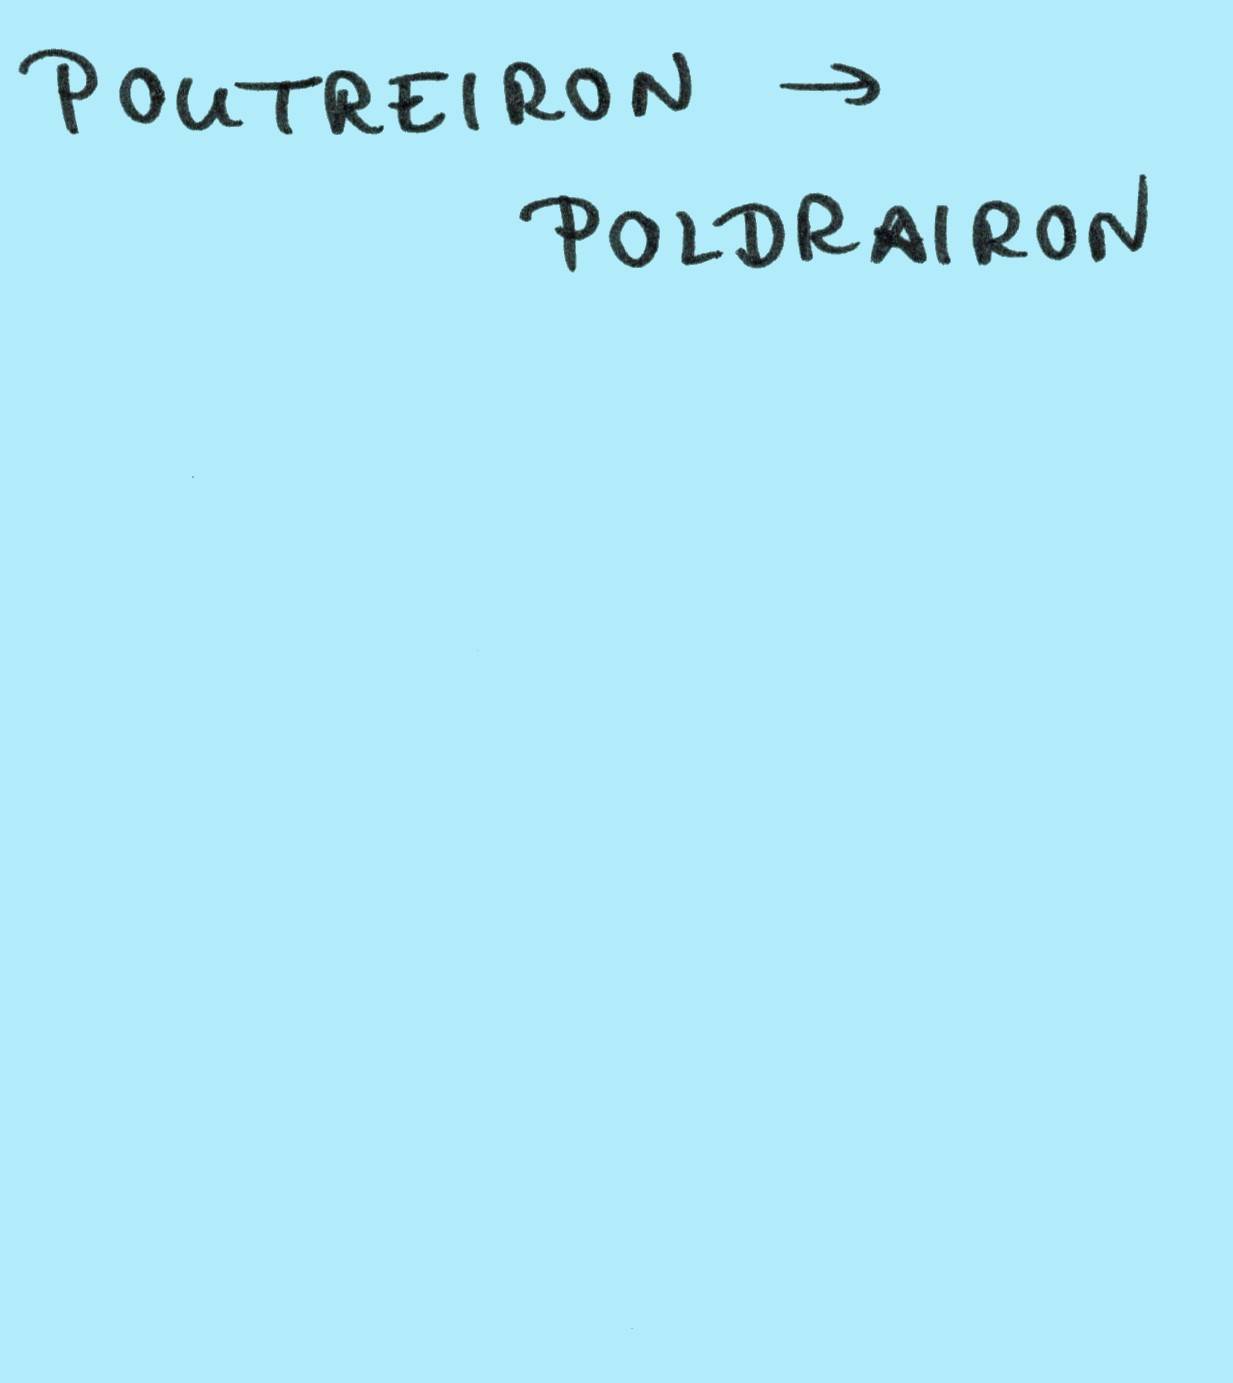 POUTREIRON →
POLDRAIRON